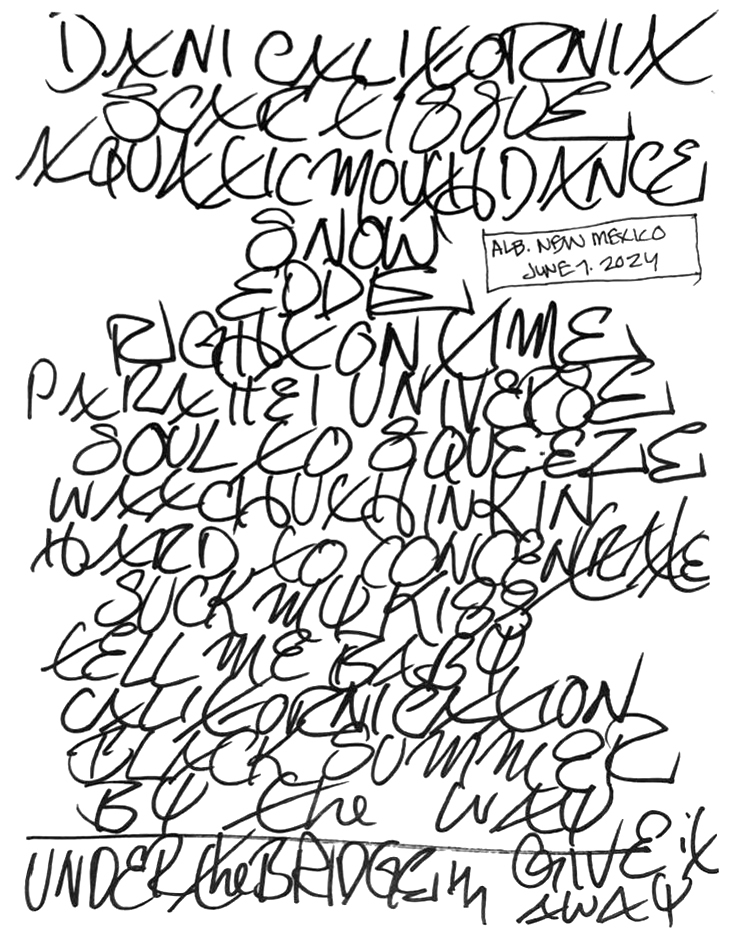 DANI CALIFORNIA
SCAR TISSUE
AQUATIC MOUTH DANCE
SNOW
ALB. NEW MEXICO
JUNE 7. 2024
EDDIE
RIGHT ON TIME
PARALLEL UNIVERSE
SOUL TO SQUEEZE
WATCHU THINKIN
HARD TO CONCENTRATE
SUCK MY KISS
TELL ME BABY
CALIFORNICATION
BLACK SUMMER
BY the WAY
UNDER the BRIDGE GIVE it
AWAY